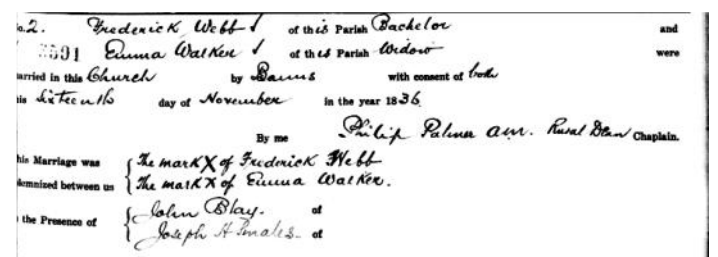 No. 2. Frederick Webb of this Parish Bachelor and
3591 Emma Walker of this Parish Widow were
arried in this Church by Banns with consent of both
his Sixteenth day of November in the year 1836
By me Philip Palmer A.M. Rural Dean Chaplain.
his Marriage was { The mark X of Frederick Webb
lemnized between us { The mark X of Emma Walker.
the Presence of { John Blay. of
Joseph H Smales of